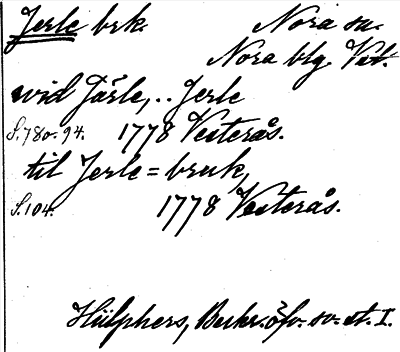 Jerle brk. Nora sn.
Nora blg. Vstm.
vid Järle, .. Jerle
S. 780. 94. 1778 Vesterås.
til Jerle=bruk,
S. 104. 1778 Vesterås.
Hülphers, Beskr. öfv. sv. st. I.